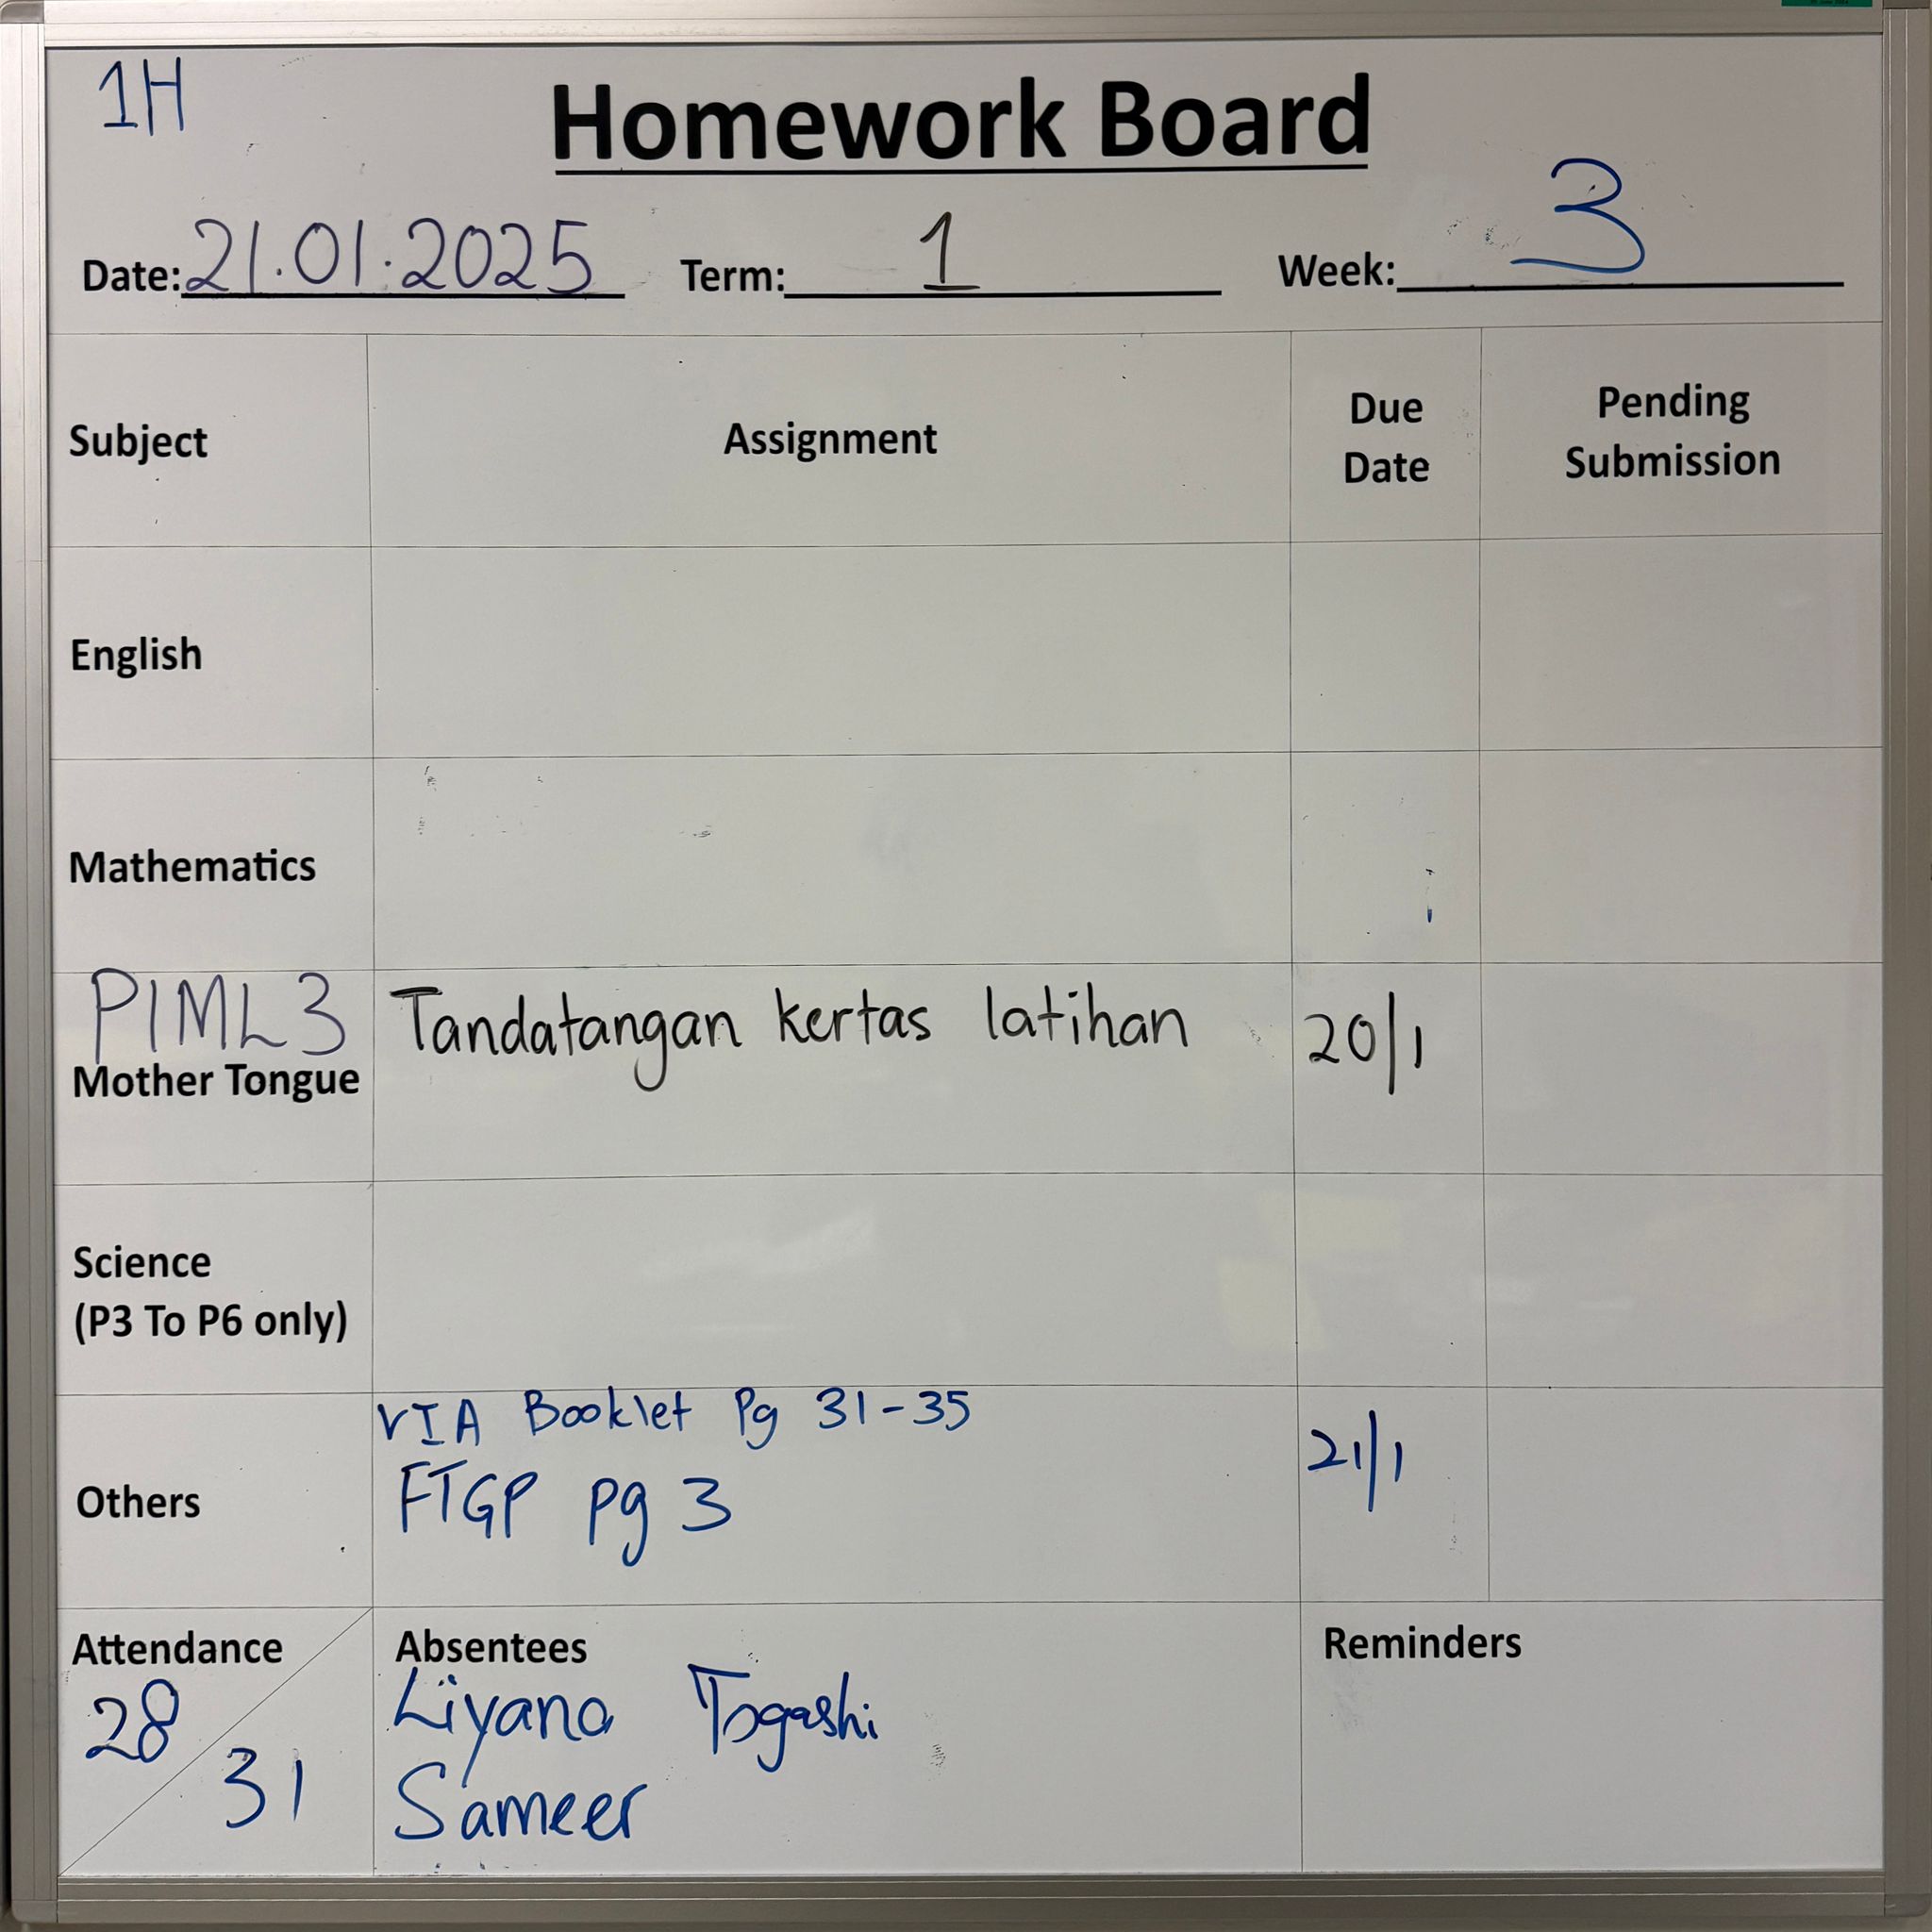 1H
Homework Board
Date: 21.01.2025 Term: 1 Week: 3
Subject Assignment Due Date Pending Submission
English
Mathematics
P1ML3
Mother Tongue Tandatangan kertas latihan 20/1
Science
(P3 To P6 only)
VIA Booklet Pg 31-35
FTGP pg 3 21/1
Others
Attendance Absentees Reminders
28 Liyana Togashi
31 Sameer